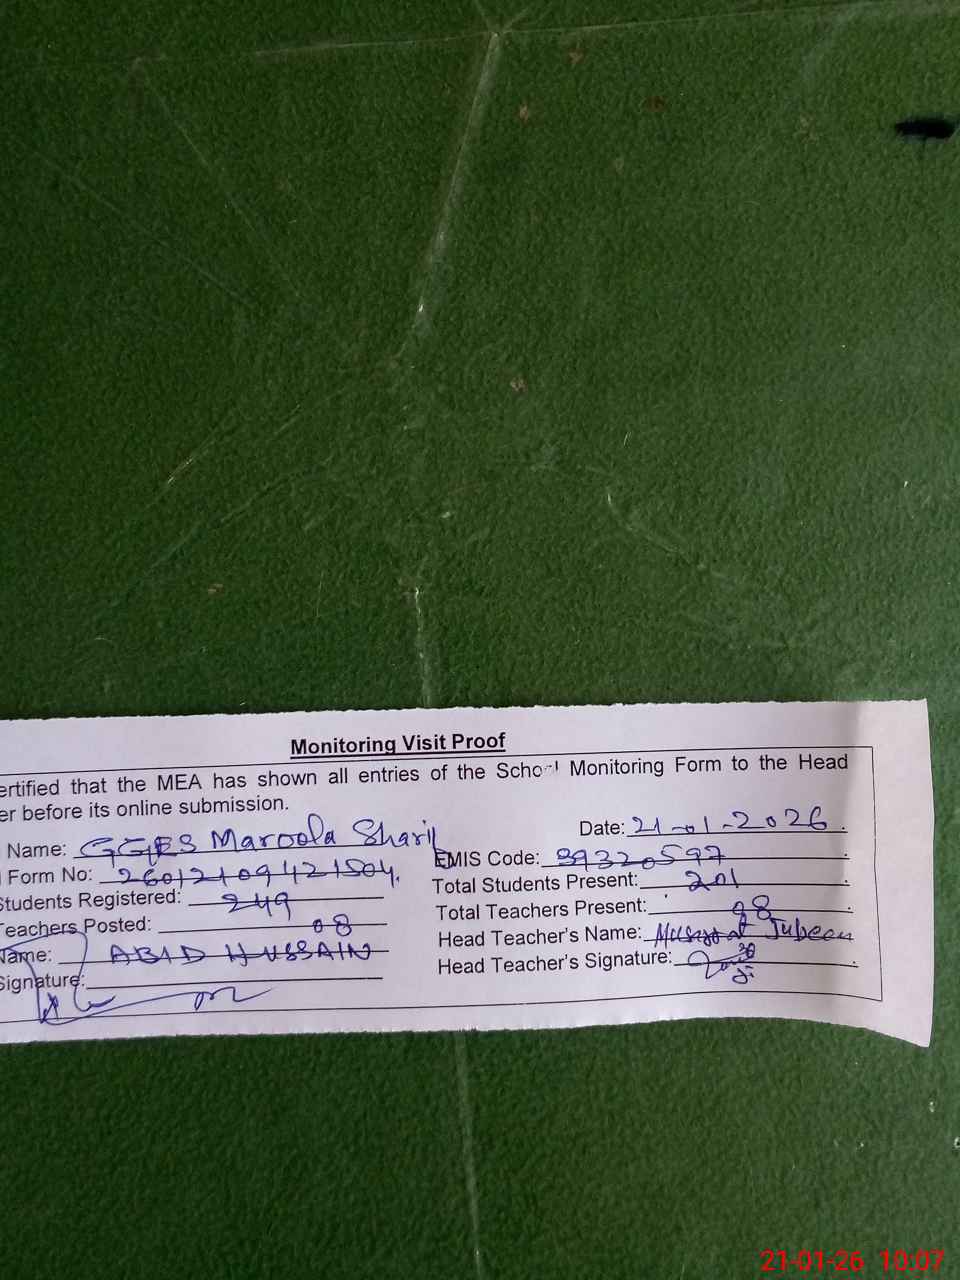 Monitoring Visit Proof
ertified that the MEA has shown all entries of the School Monitoring Form to the Head
er before its online submission.
Name: GGES Maroola Sharif Date: 21-01-2026
Form No: 260121094 21504. EMIS Code: 39320597
Students Registered: 249 Total Students Present: 201
Teachers Posted: 08 Total Teachers Present: 08
Name: ABID HUSSAIN Head Teacher's Name:
Signature: Head Teacher's Signature:
21-01-26 10:07